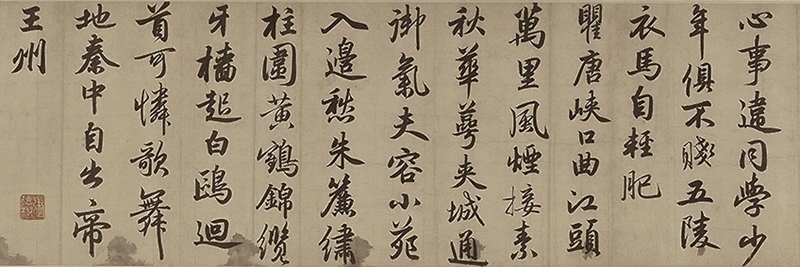 心事違同學少
年俱不賤五陵
衣馬自輕肥
瞿唐峽口曲江頭
萬里風煙接素
秋華萼夾城通
御氣夫容小苑
入邊愁朱簾繡
柱圍黃鶴錦纜
牙檣起白鷗迴
首可憐歌舞
地秦中自古帝
王州